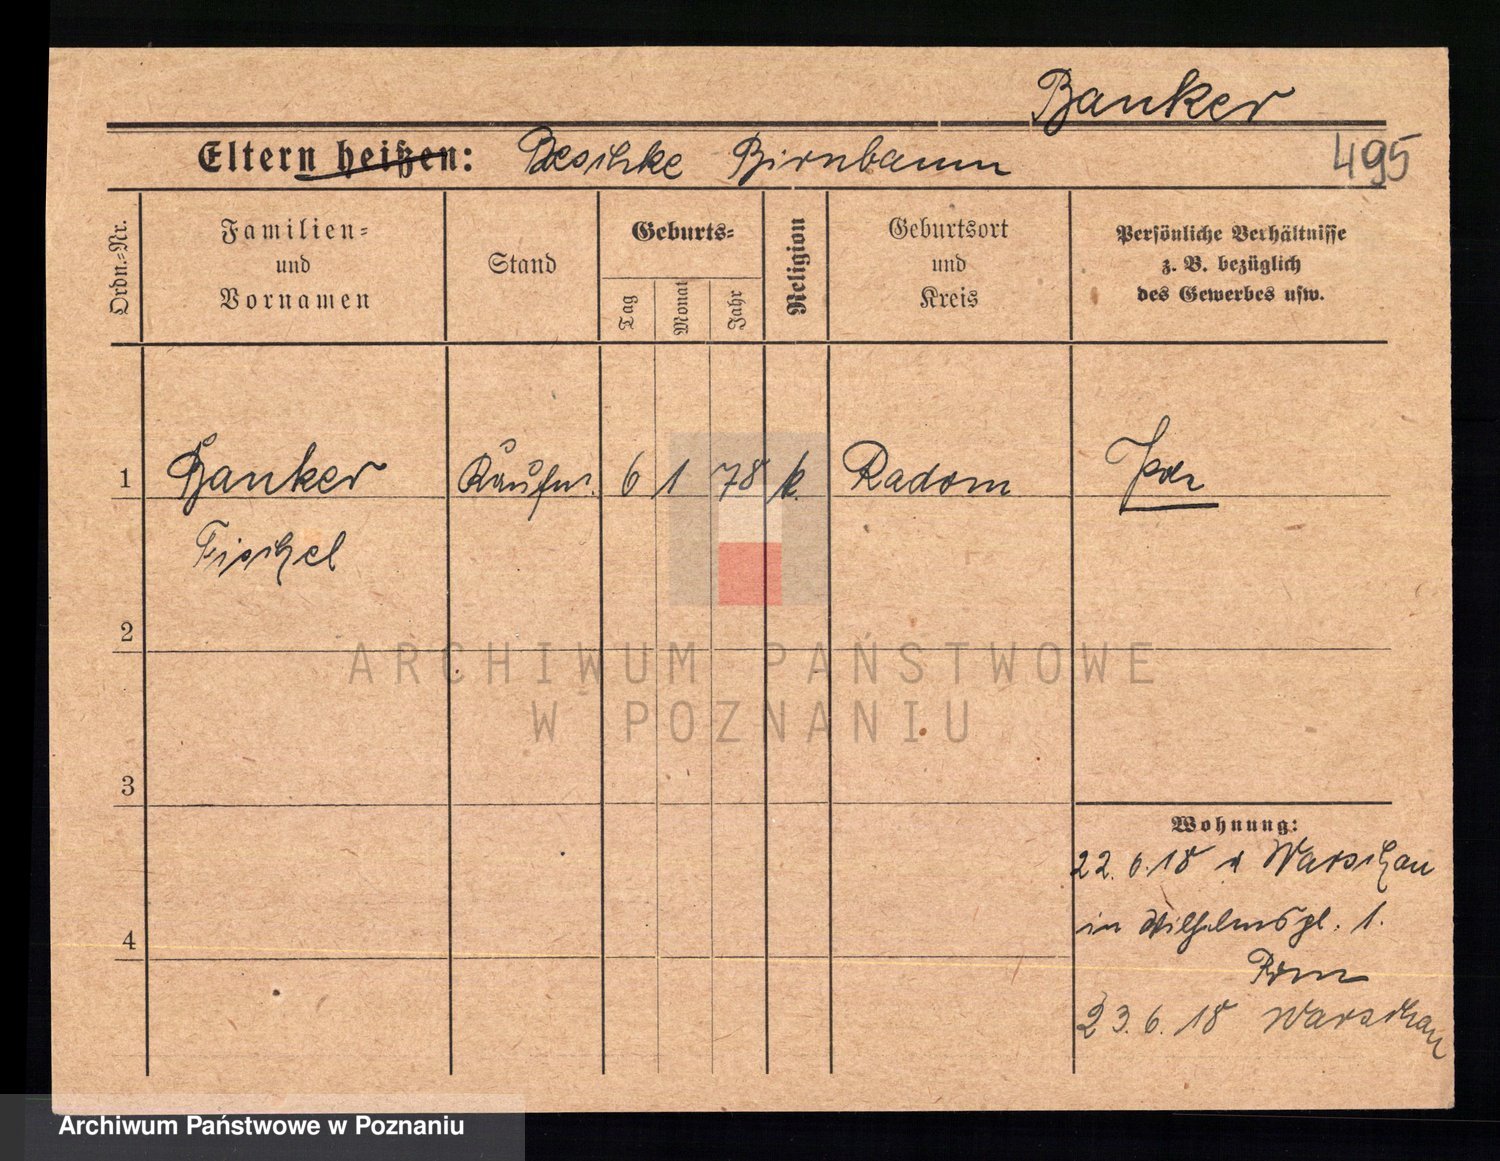 Banker
Eltern heißen: Beschke Birnbaum
495
Ordn.=Nr.
Familien=
und
Vornamen
Stand
Geburts=
Tag
Monat
Jahr
Religion
Geburtsort
und
Kreis
Persönliche Verhältnisse
z. B. bezüglich
des Gewerbes usw.
1 Banker Kaufm. 6 1 78 k. Radom
Fischel
2
3
4
ARCHIWUM PAŃSTWOWE
W POZNANIU
Wohnung:
22.6.18 Warschau
in Wilhelmspl. 1.
23.6.18 Warschau
Archiwum Państwowe w Poznaniu